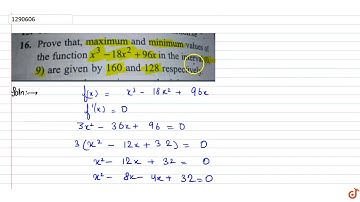 1290606
16. Prove that, maximum and minimum values of
the function x³ – 18x² + 96x in the
9) are given by 160 and 128 respectively.
Soln:→ f(x) = x³ - 18x² + 96x
f'(x) = 0
3x² - 36x + 96 = 0
3(x² - 12x + 32) = 0
x² - 12x + 32 = 0
x² - 8x - 4x + 32 = 0